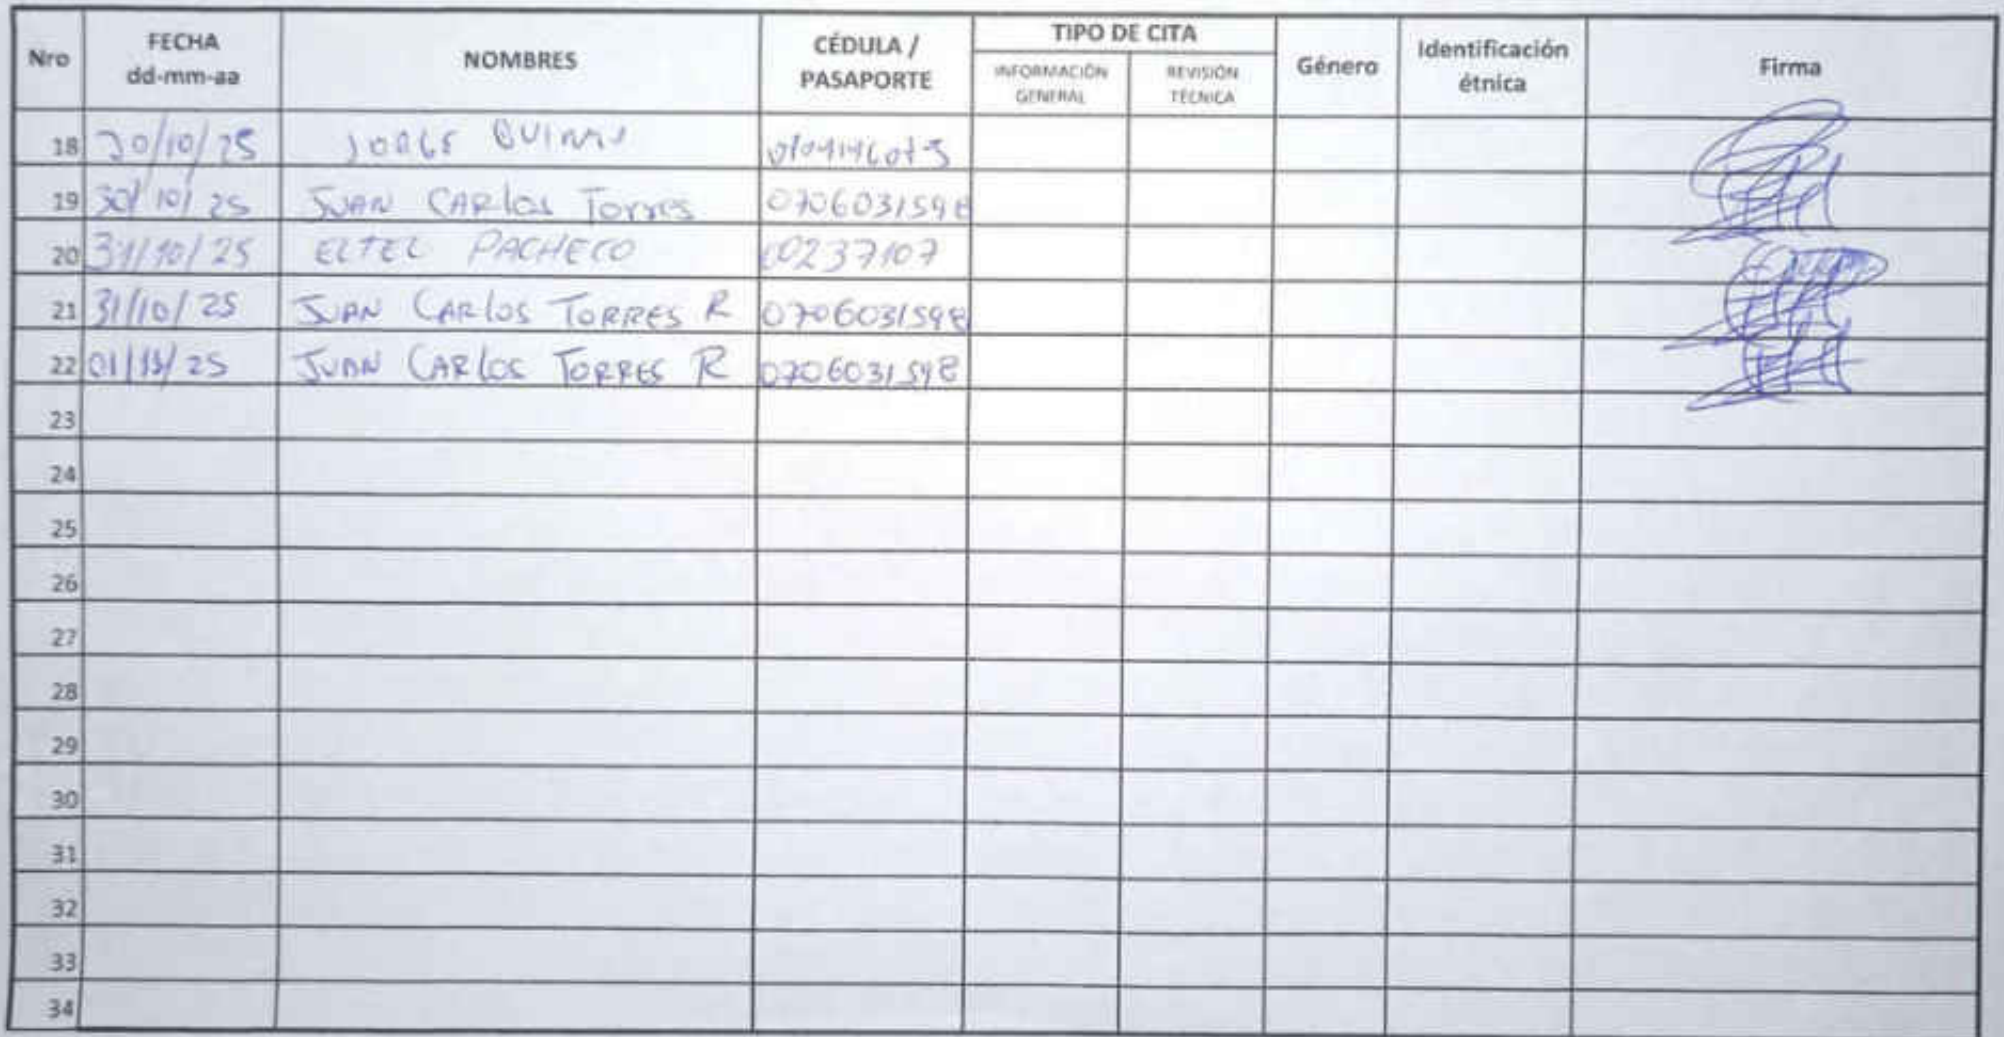 Nro FECHA dd-mm-aa NOMBRES CÉDULA / PASAPORTE TIPO DE CITA INFORMACIÓN GENERAL REVISIÓN TÉCNICA Género Identificación étnica Firma
18 30/10/25 JORGE
19 30/10/25 JUAN CARlos Torres 0706031598
20 31/10/25 ELTEL PACHECO 00237107
21 31/10/25 JUAN CARlos TORRES R 0706031598
22 01/11/25 JUAN CARlos TORRES R 0706031598
23
24
25
26
27
28
29
30
31
32
33
34